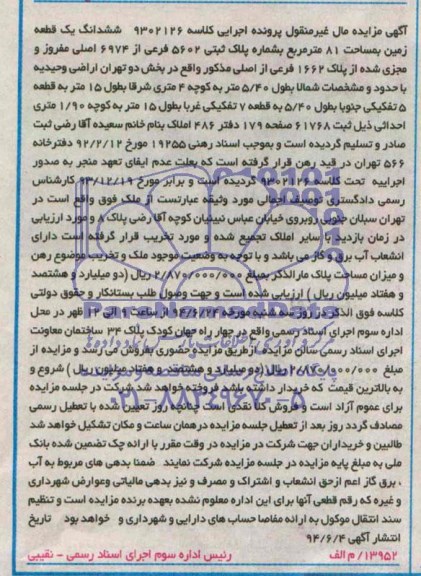 آگهی مزایده مال غیرمنقول پرونده اجرایی کلاسه ۹۳۰۲۱۲۶ ششدانگ یک قطعه
زمین بمساحت ۸۱ مترمربع بشماره پلاک ثبتی ۵۶۰۲ فرعی از ۶۹۷۴ اصلی مفروز و
مجزی شده از پلاک ۱۶۶۲ فرعی از اصلی مذکور واقع در بخش دو تهران اراضی وحیدیه
با حدود و مشخصات شمالا بطول ۵/۴۰ متر به کوچه ۴ متری شرقا بطول ۱۵ متر به قطعه
۵ تفکیکی جنوبا بطول ۵/۴۰ به قطعه ۷ تفکیکی غربا بطول ۱۵ متر به کوچه ۱/۹۰ متری
احداثی ذیل ثبت ۶۱۷۶۸ صفحه ۱۷۹ دفتر ۴۸۶ املاک بنام خانم سعیده آقا رضی ثبت
صادر و تسلیم گردیده است و بموجب اسناد رهنی ۱۹۲۵۵ مورخ ۹۲/۲/۱۲ دفترخانه
۵۶۶ تهران در قید رهن قرار گرفته است که بعلت عدم ایفای تعهد منجر به صدور
اجراییه تحت کلاسه ۹۳۰۲۱۲۶ گردیده است و برابر مورخ ۹۳/۱۲/۱۹ کارشناس
رسمی دادگستری توصیف اجمالی مورد وثیقه عبارتست از ملک فوق واقع است در
تهران سبلان جنوبی روبروی خیابان عباس نبیئیان کوچه آقا رضی پلاک ۸ و مورد ارزیابی
در زمان بازدید با سایر املاک تجمیع شده و مورد تخریب قرار گرفته است دارای
انشعاب آب برق و گاز می باشد و با توجه به وضعیت موجود ملک و تخریب موضوع رهن
و میزان مساحت پلاک مارالذکر بمبلغ ۲/۸۷۰/۰۰۰/۰۰۰ ریال (دو میلیارد و هشتصد
و هفتاد میلیون ریال) ارزیابی شده است و جهت وصول طلب بستانکار و حقوق دولتی
کلاسه فوق الذکر در روز سه شنبه مورخه ۹۴/۶/۲۴ از ساعت ۹ الی ۱۲ ظهر در محل
اداره سوم اجرای اسناد رسمی واقع در چهار راه جهان کودک پلاک ۳۴ ساختمان معاونت
اجرای اسناد رسمی سالن مزایده ازطریق مزایده حضوری بفروش می رسد و مزایده از
مبلغ ۲/۸۷۰/۰۰۰/۰۰۰ ریال (دو میلیارد و هشتصد و هفتاد میلیون ریال) شروع و
به بالاترین قیمت که خریدار داشته باشد فروخته خواهد شد شرکت در جلسه مزایده
برای عموم آزاد است و فروش کلا نقدی است چنانچه روز تعیین شده با تعطیل رسمی
مصادف گردد روز بعد از تعطیل جلسه مزایده درهمان ساعت و مکان تشکیل خواهد شد
طالبین و خریداران جهت شرکت در مزایده در وقت مقرر با ارائه چک تضمین شده بانک
ملی به مبلغ پایه مزایده در جلسه مزایده شرکت نمایند ضمنا بدهی های مربوط به آب
، برق گاز اعم ازحق انشعاب و اشتراک و مصرف و نیز بدهی مالیاتی وعوارض شهرداری
و غیره که رقم قطعی آنها برای این اداره معلوم نشده بعهده برنده مزایده است و تنظیم
سند انتقال موکول به ارائه مفاصا حساب های دارایی و شهرداری و خواهد بود تاریخ
انتشار آگهی ۹۴/۶/۴
۱۳۹۵۲/ م الف رئیس اداره سوم اجرای اسناد رسمی - نقیبی
۰۲۱-۸۸۳۴۹۶۷۰-۵